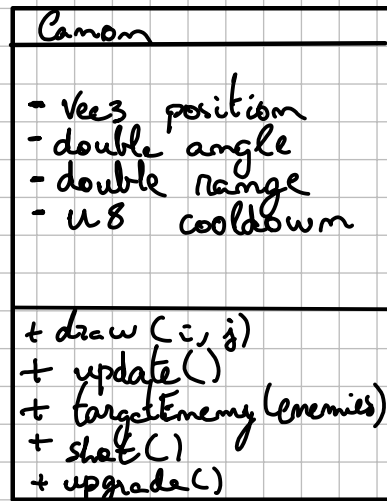 Canon
- Vec3 position
- double angle
- double range
- u8 cooldown
+ draw (i, j)
+ update()
+ targetEnemy (enemies)
+ shot()
+ upgrade()